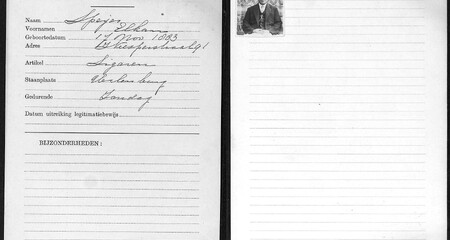 Naam Speijer
Voornamen Elkan
Geboortedatum 17 Nov 1883
Adres
Artikel Sigaren
Staanplaats Uilenburg
Gedurende Zondag
Datum uitreiking legitimatiebewijs
BIJZONDERHEDEN: